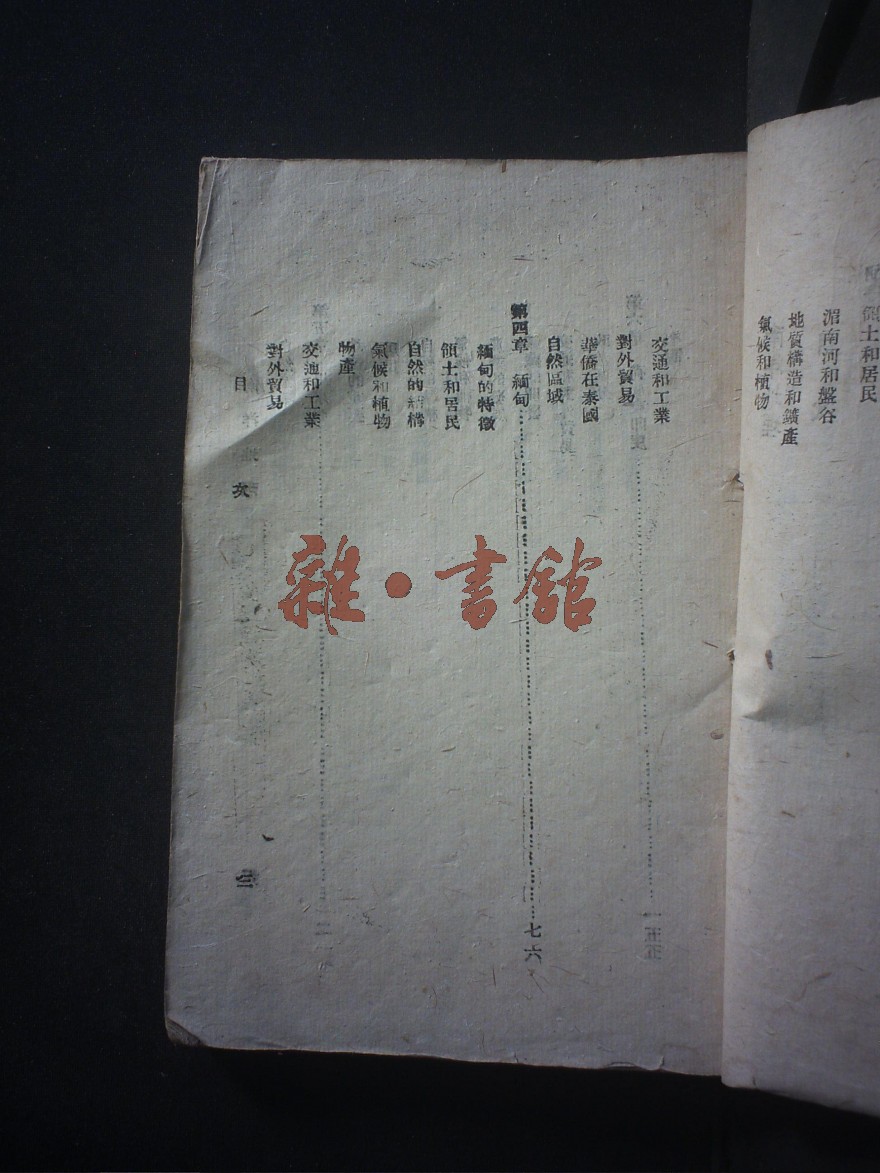 領土和居民
湄南河和盤谷
地質構造和鑛產
氣候和植物
交通和工業
對外貿易
華僑在泰國
自然區域
第四章 緬甸……七六
緬甸的特徵
領土和居民
自然的結構
氣候和植物
物產
交通和工業
對外貿易
目次
雜·書舘